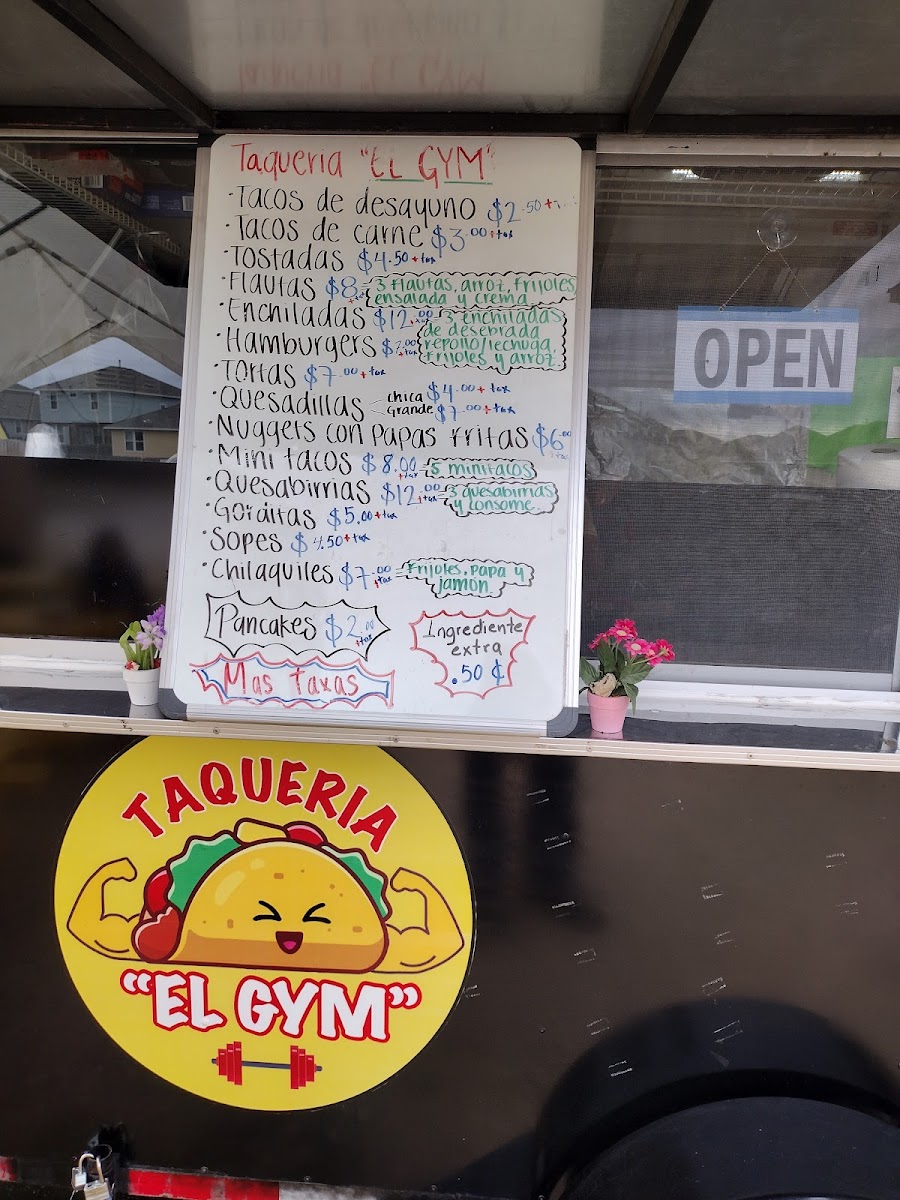 Taqueria "EL GYM"
·Tacos de desayuno $2.50+
·Tacos de carne $3.00+tax
·Tostadas $4.50+tax
·Flautas $8 = 3 Flautas, arroz, frijoles
ensalada y crema
·Enchiladas $12.00+tax = 3 enchiladas
de desebrada
repollo/lechuga
frijoles y arroz
·Hamburgers +tax
·Tortas $7.00+tax
·Quesadillas chica $4.00+tax
Grande $7.00+tax
·Nuggets con papas fritas $6.00
·Mini tacos $8.00+tax = 5 minitacos
·Quesabirrias $12.00+tax = 3 quesabirrias
y consome.
·Gorditas $5.00+tax
·Sopes $4.50+tax
·Chilaquiles $7.00+tax = Frijoles, papa y
jamon.
Pancakes $2.00+tax
Ingrediente
extra
.50 ¢
Mas Taxas
OPEN
TAQUERIA
"EL GYM"